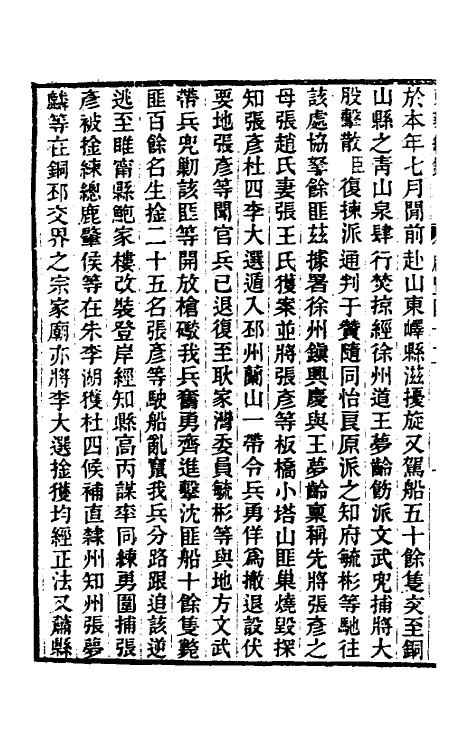 於本年七月閒前赴山東嶧縣滋擾旋又駕船五十餘隻交至銅
山縣之靑山泉肆行焚掠經徐州道王夢齡飭派文武兜捕將大
股擊散臣復揀派通判于贊隨同怡良原派之知府毓彬等馳往
該處協拏餘匪茲據署徐州鎭興慶與王夢齡稟稱先將張彥之
母張趙氏妻張王氏獲案並將張彥等板橋小塔山匪巢燒毀探
知張彥杜四李大選遁入邳州蘭山一帶令兵勇佯爲撤退設伏
要地張彥等聞官兵已退復至耿家灣委員毓彬等與地方文武
帶兵兜勦該匪等開放槍礮我兵奮勇齊進擊沈匪船十餘隻斃
匪百餘名生捦二十五名張彥等駛船亂竄我兵分路跟追該逆
逃至睢甯縣鮑家樓改裝登岸經知縣高丙謀率同練勇圍捕張
彥被捦練總鹿肇侯等在朱李湖獲杜四候補直隸州知州張夢
麟等在銅邳交界之宗家廟亦將李大選捦獲均經正法又蕭縣